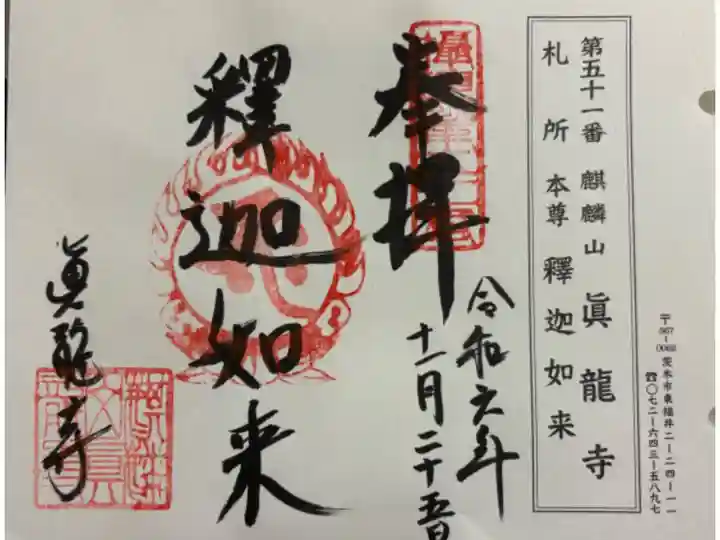 第五十一番 麒麟山 眞龍寺
札所本尊 釋迦如来
〒567-0068 茨木市東福井二ー二四ー一一
☎〇七二ー六四三ー五八九七
奉拝
令和六年
十一月二十五日
釋迦如来
眞龍寺